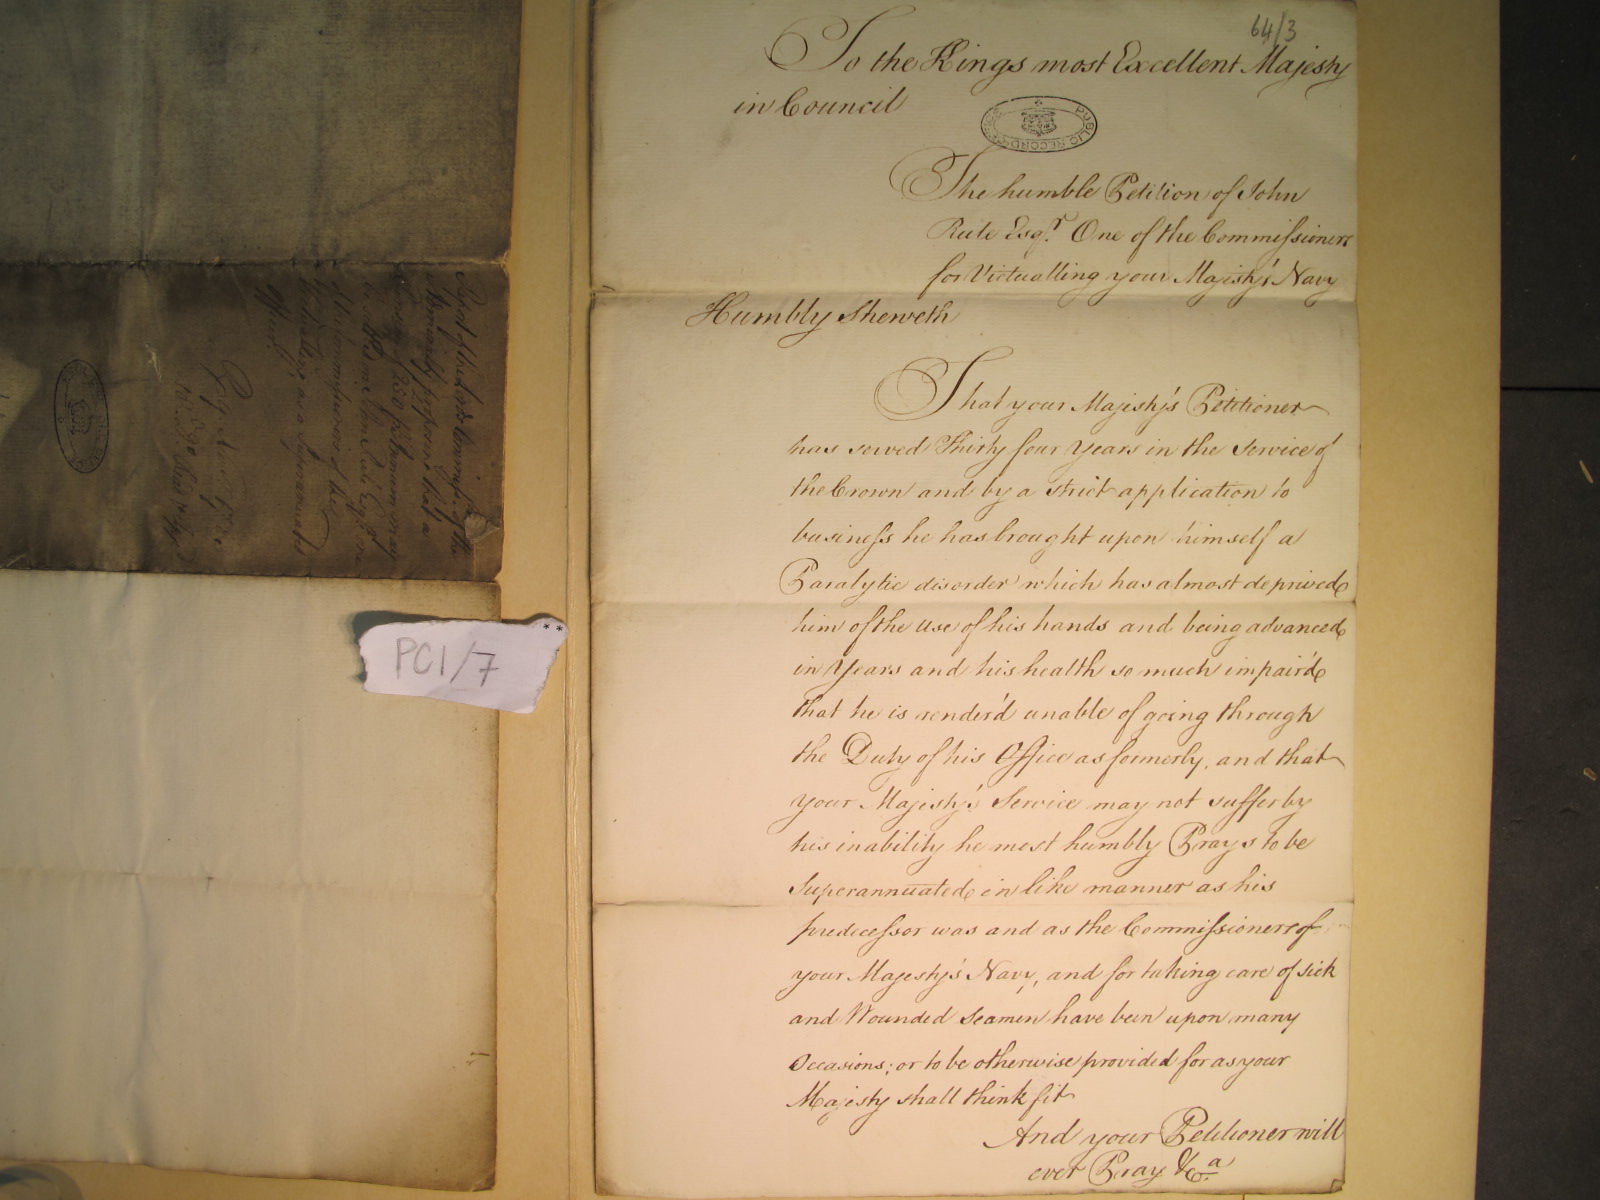 64/3
To the Kings most Excellent Majesty
in Council
PUBLIC RECORD
The humble Petition of John
Rule Esqr. One of the Commissioners
for Victualling your Majesty's Navy
Humbly Sheweth
That your Majesty's Petitioner
has served Thirty four Years in the Service of
the Crown and by a strict application to
business he has brought upon himself a
Paralytic disorder which has almost deprived
him of the use of his hands and being advanced
in Years and his health so much impair'd
that he is render'd unable of going through
the Duty of his Office as formerly, and that
your Majesty's Service may not suffer by
his inability he most humbly Prays to be
Superannuated in like manner as his
predecessor was and as the Commissioners of
your Majesty's Navy, and for taking care of sick
and Wounded Seamen have been upon many
Occasions; or to be otherwise provided for as your
Majesty shall think fit
And your Petitioner will
ever Pray &c.a
PC1/7